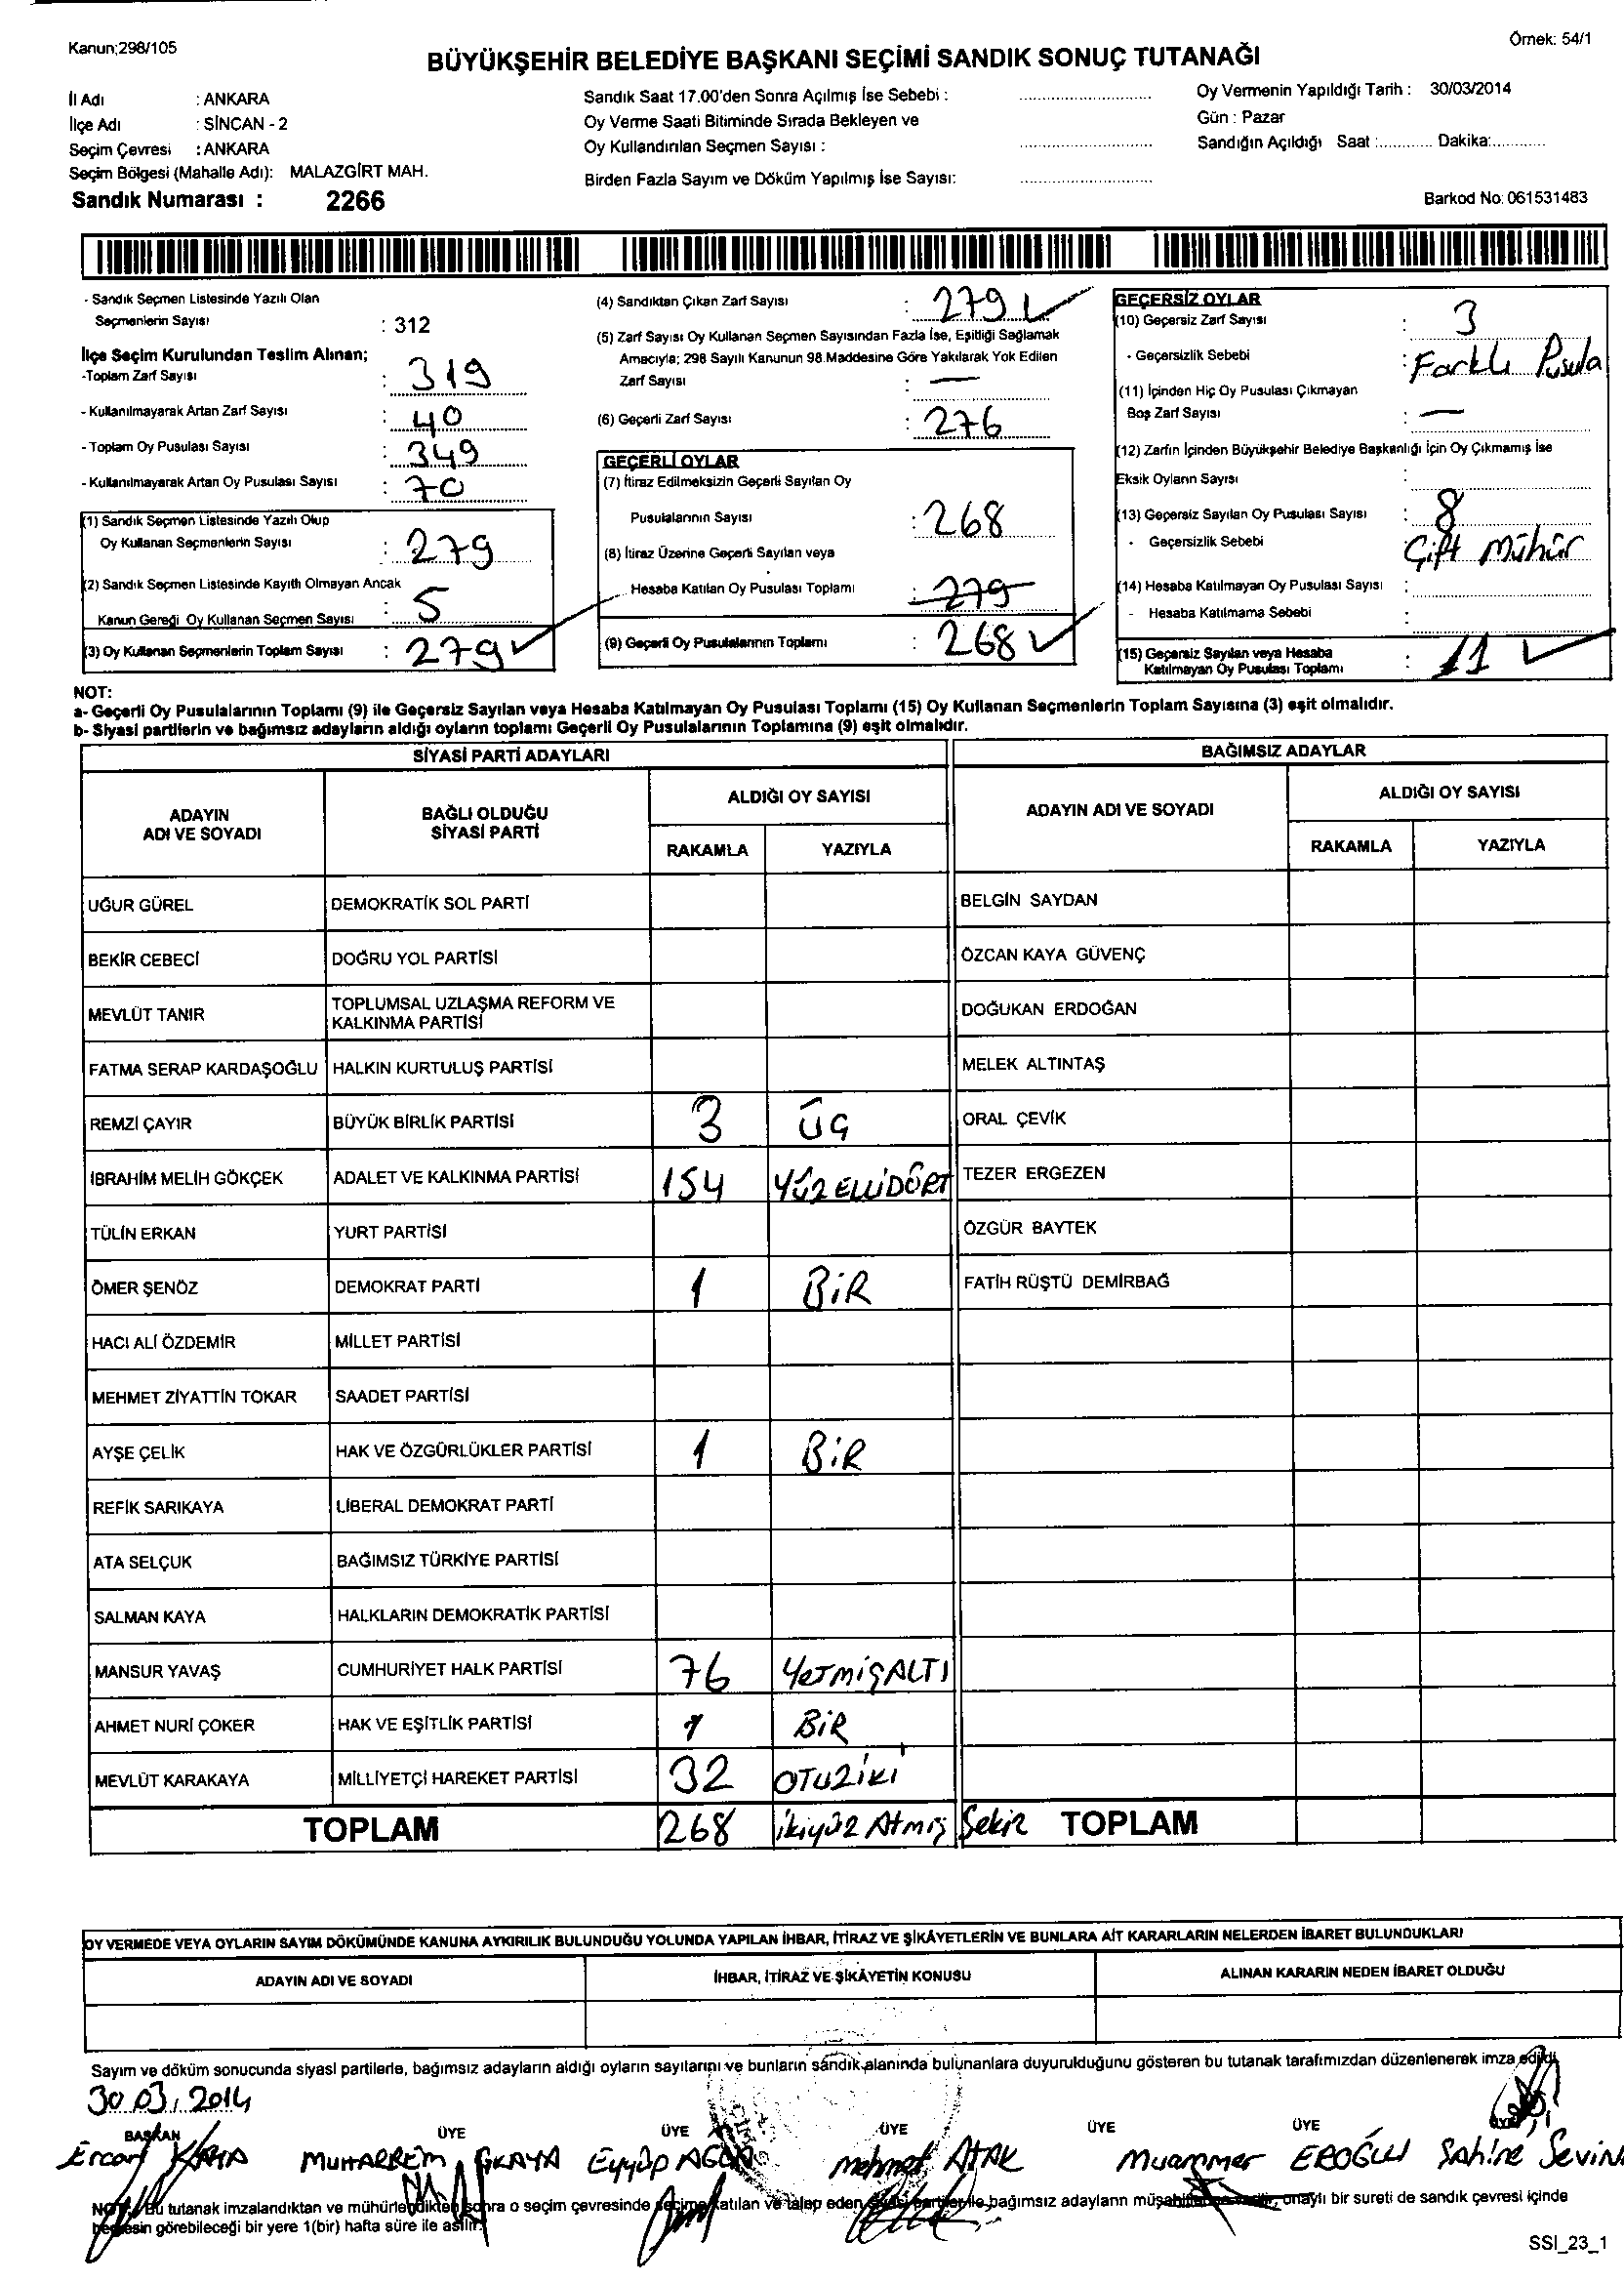 Kanun;298/105
Örnek: 54/1
BÜYÜKŞEHİR BELEDİYE BAŞKANI SEÇİMİ SANDIK SONUÇ TUTANAĞI
İl Adı : ANKARA
İlçe Adı : SİNCAN - 2
Seçim Çevresi : ANKARA
Seçim Bölgesi (Mahalle Adı): MALAZGİRT MAH.
Sandık Numarası : 2266
Sandık Saat 17.00'den Sonra Açılmış İse Sebebi :
Oy Verme Saati Bitiminde Sırada Bekleyen ve
Oy Kullandırılan Seçmen Sayısı :
Birden Fazla Sayım ve Döküm Yapılmış İse Sayısı:
Oy Vermenin Yapıldığı Tarih : 30/03/2014
Gün : Pazar
Sandığın Açıldığı Saat :............ Dakika:............
Barkod No: 061531483
- Sandık Seçmen Listesinde Yazılı Olan
Seçmenlerin Sayısı : 312
İlçe Seçim Kurulundan Teslim Alınan;
-Toplam Zarf Sayısı : 319
- Kullanılmayarak Artan Zarf Sayısı : 40
- Toplam Oy Pusulası Sayısı : 349
- Kullanılmayarak Artan Oy Pusulası Sayısı : 70
(1) Sandık Seçmen Listesinde Yazılı Olup
Oy Kullanan Seçmenlerin Sayısı : 279
(2) Sandık Seçmen Listesinde Kayıtlı Olmayan Ancak
Kanun Gereği Oy Kullanan Seçmen Sayısı : 5
(3) Oy Kullanan Seçmenlerin Toplam Sayısı : 279
(4) Sandıktan Çıkan Zarf Sayısı : 279
(5) Zarf Sayısı Oy Kullanan Seçmen Sayısından Fazla İse, Eşitliği Sağlamak
Amacıyla; 298 Sayılı Kanunun 98.Maddesine Göre Yakılarak Yok Edilen
Zarf Sayısı : —
(6) Geçerli Zarf Sayısı : 276
GEÇERLİ OYLAR
(7) İtiraz Edilmeksizin Geçerli Sayılan Oy
Pusulalarının Sayısı : 268
(8) İtiraz Üzerine Geçerli Sayılan veya
Hesaba Katılan Oy Pusulası Toplamı : 279
(9) Geçerli Oy Pusulalarının Toplamı : 268
GEÇERSİZ OYLAR
(10) Geçersiz Zarf Sayısı : 3
- Geçersizlik Sebebi : Farklı Pusula
(11) İçinden Hiç Oy Pusulası Çıkmayan
Boş Zarf Sayısı : —
(12) Zarfın İçinden Büyükşehir Belediye Başkanlığı İçin Oy Çıkmamış İse
Eksik Oyların Sayısı :
(13) Geçersiz Sayılan Oy Pusulası Sayısı : 8
- Geçersizlik Sebebi : Çift Mühür
(14) Hesaba Katılmayan Oy Pusulası Sayısı :
- Hesaba Katılmama Sebebi :
(15) Geçersiz Sayılan veya Hesaba
Katılmayan Oy Pusulası Toplamı : 11
NOT:
a- Geçerli Oy Pusulalarının Toplamı (9) ile Geçersiz Sayılan veya Hesaba Katılmayan Oy Pusulası Toplamı (15) Oy Kullanan Seçmenlerin Toplam Sayısına (3) eşit olmalıdır.
b- Siyasi partilerin ve bağımsız adayların aldığı oyların toplamı Geçerli Oy Pusulalarının Toplamına (9) eşit olmalıdır.
SİYASİ PARTİ ADAYLARI
BAĞIMSIZ ADAYLAR
ADAYIN
ADI VE SOYADI
BAĞLI OLDUĞU
SİYASİ PARTİ
ALDIĞI OY SAYISI
RAKAMLA YAZIYLA
ADAYIN ADI VE SOYADI
ALDIĞI OY SAYISI
RAKAMLA YAZIYLA
UĞUR GÜREL DEMOKRATİK SOL PARTİ BELGİN SAYDAN
BEKİR CEBECİ DOĞRU YOL PARTİSİ ÖZCAN KAYA GÜVENÇ
MEVLÜT TANIR TOPLUMSAL UZLAŞMA REFORM VE
KALKINMA PARTİSİ DOĞUKAN ERDOĞAN
FATMA SERAP KARDAŞOĞLU HALKIN KURTULUŞ PARTİSİ MELEK ALTINTAŞ
REMZİ ÇAYIR BÜYÜK BİRLİK PARTİSİ 3 ÜÇ ORAL ÇEVİK
İBRAHİM MELİH GÖKÇEK ADALET VE KALKINMA PARTİSİ 154 YÜZ ELLİDÖRT TEZER ERGEZEN
TÜLİN ERKAN YURT PARTİSİ ÖZGÜR BAYTEK
ÖMER ŞENÖZ DEMOKRAT PARTİ 1 BİR FATİH RÜŞTÜ DEMİRBAĞ
HACI ALİ ÖZDEMİR MİLLET PARTİSİ
MEHMET ZİYATTİN TOKAR SAADET PARTİSİ
AYŞE ÇELİK HAK VE ÖZGÜRLÜKLER PARTİSİ 1 BİR
REFİK SARIKAYA LİBERAL DEMOKRAT PARTİ
ATA SELÇUK BAĞIMSIZ TÜRKİYE PARTİSİ
SALMAN KAYA HALKLARIN DEMOKRATİK PARTİSİ
MANSUR YAVAŞ CUMHURİYET HALK PARTİSİ 76 YETMİŞALTI
AHMET NURİ ÇOKER HAK VE EŞİTLİK PARTİSİ 1 BİR
MEVLÜT KARAKAYA MİLLİYETÇİ HAREKET PARTİSİ 32 OTUZİKİ
TOPLAM 268 İkiyüz Atmış Sekiz TOPLAM
OY VERMEDE VEYA OYLARIN SAYIM DÖKÜMÜNDE KANUNA AYKIRILIK BULUNDUĞU YOLUNDA YAPILAN İHBAR, İTİRAZ VE ŞİKÂYETLERİN VE BUNLARA AİT KARARLARIN NELERDEN İBARET BULUNDUKLARI
ADAYIN ADI VE SOYADI İHBAR, İTİRAZ VE ŞİKÂYETİN KONUSU ALINAN KARARIN NEDEN İBARET OLDUĞU
Sayım ve döküm sonucunda siyasi partilerle, bağımsız adayların aldığı oyların sayılarını ve bunların sandık alanında bulunanlara duyurulduğunu gösteren bu tutanak tarafımızdan düzenlenerek imza edildi.
30.03.2014
BAŞKAN ÜYE ÜYE ÜYE ÜYE ÜYE ÜYE
Ercan KAYA Muharrem AKAYA Eyyüp Mehmet ATAK Muammer EROĞLU Şahine
NOT: Bu tutanak imzalandıktan ve mühürlendikten sonra o seçim çevresinde seçime katılan ve talep eden siyasi partiler ile bağımsız adayların müşahitlerine onaylı bir sureti de sandık çevresi içinde
herkesin görebileceği bir yere 1(bir) hafta süre ile asılır.
SSİ_23_1